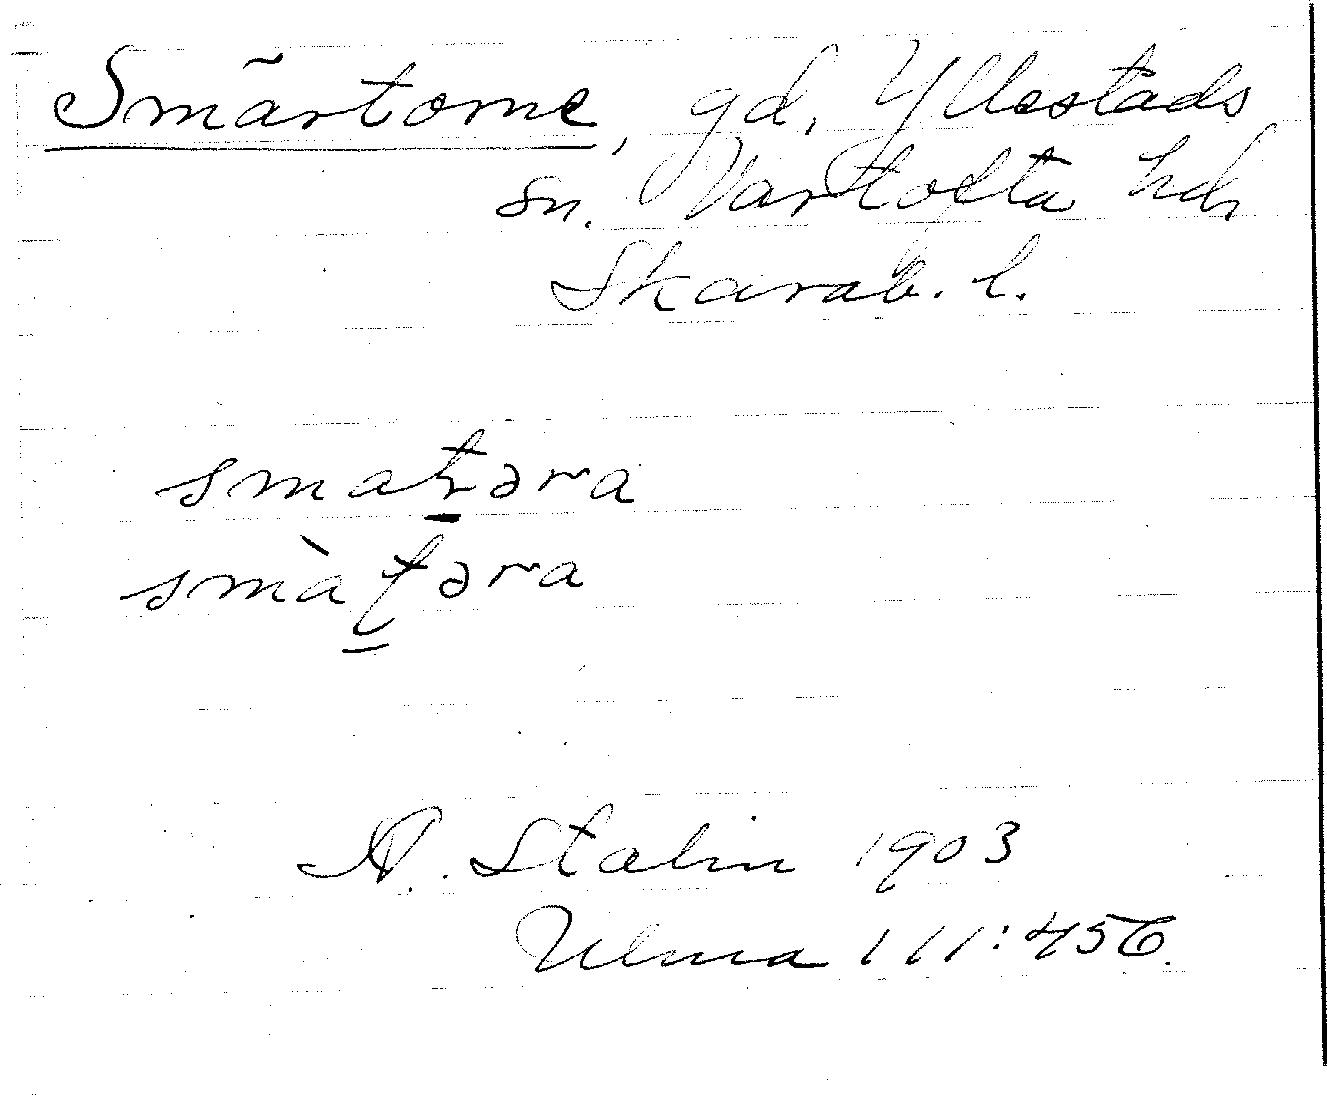 Smãrtorne, gd, Yllestads
sn. Vartofta hd,
Skarab. l.
smaťəra
smàťəra
A. Stalin 1903
Ulma 111:456.